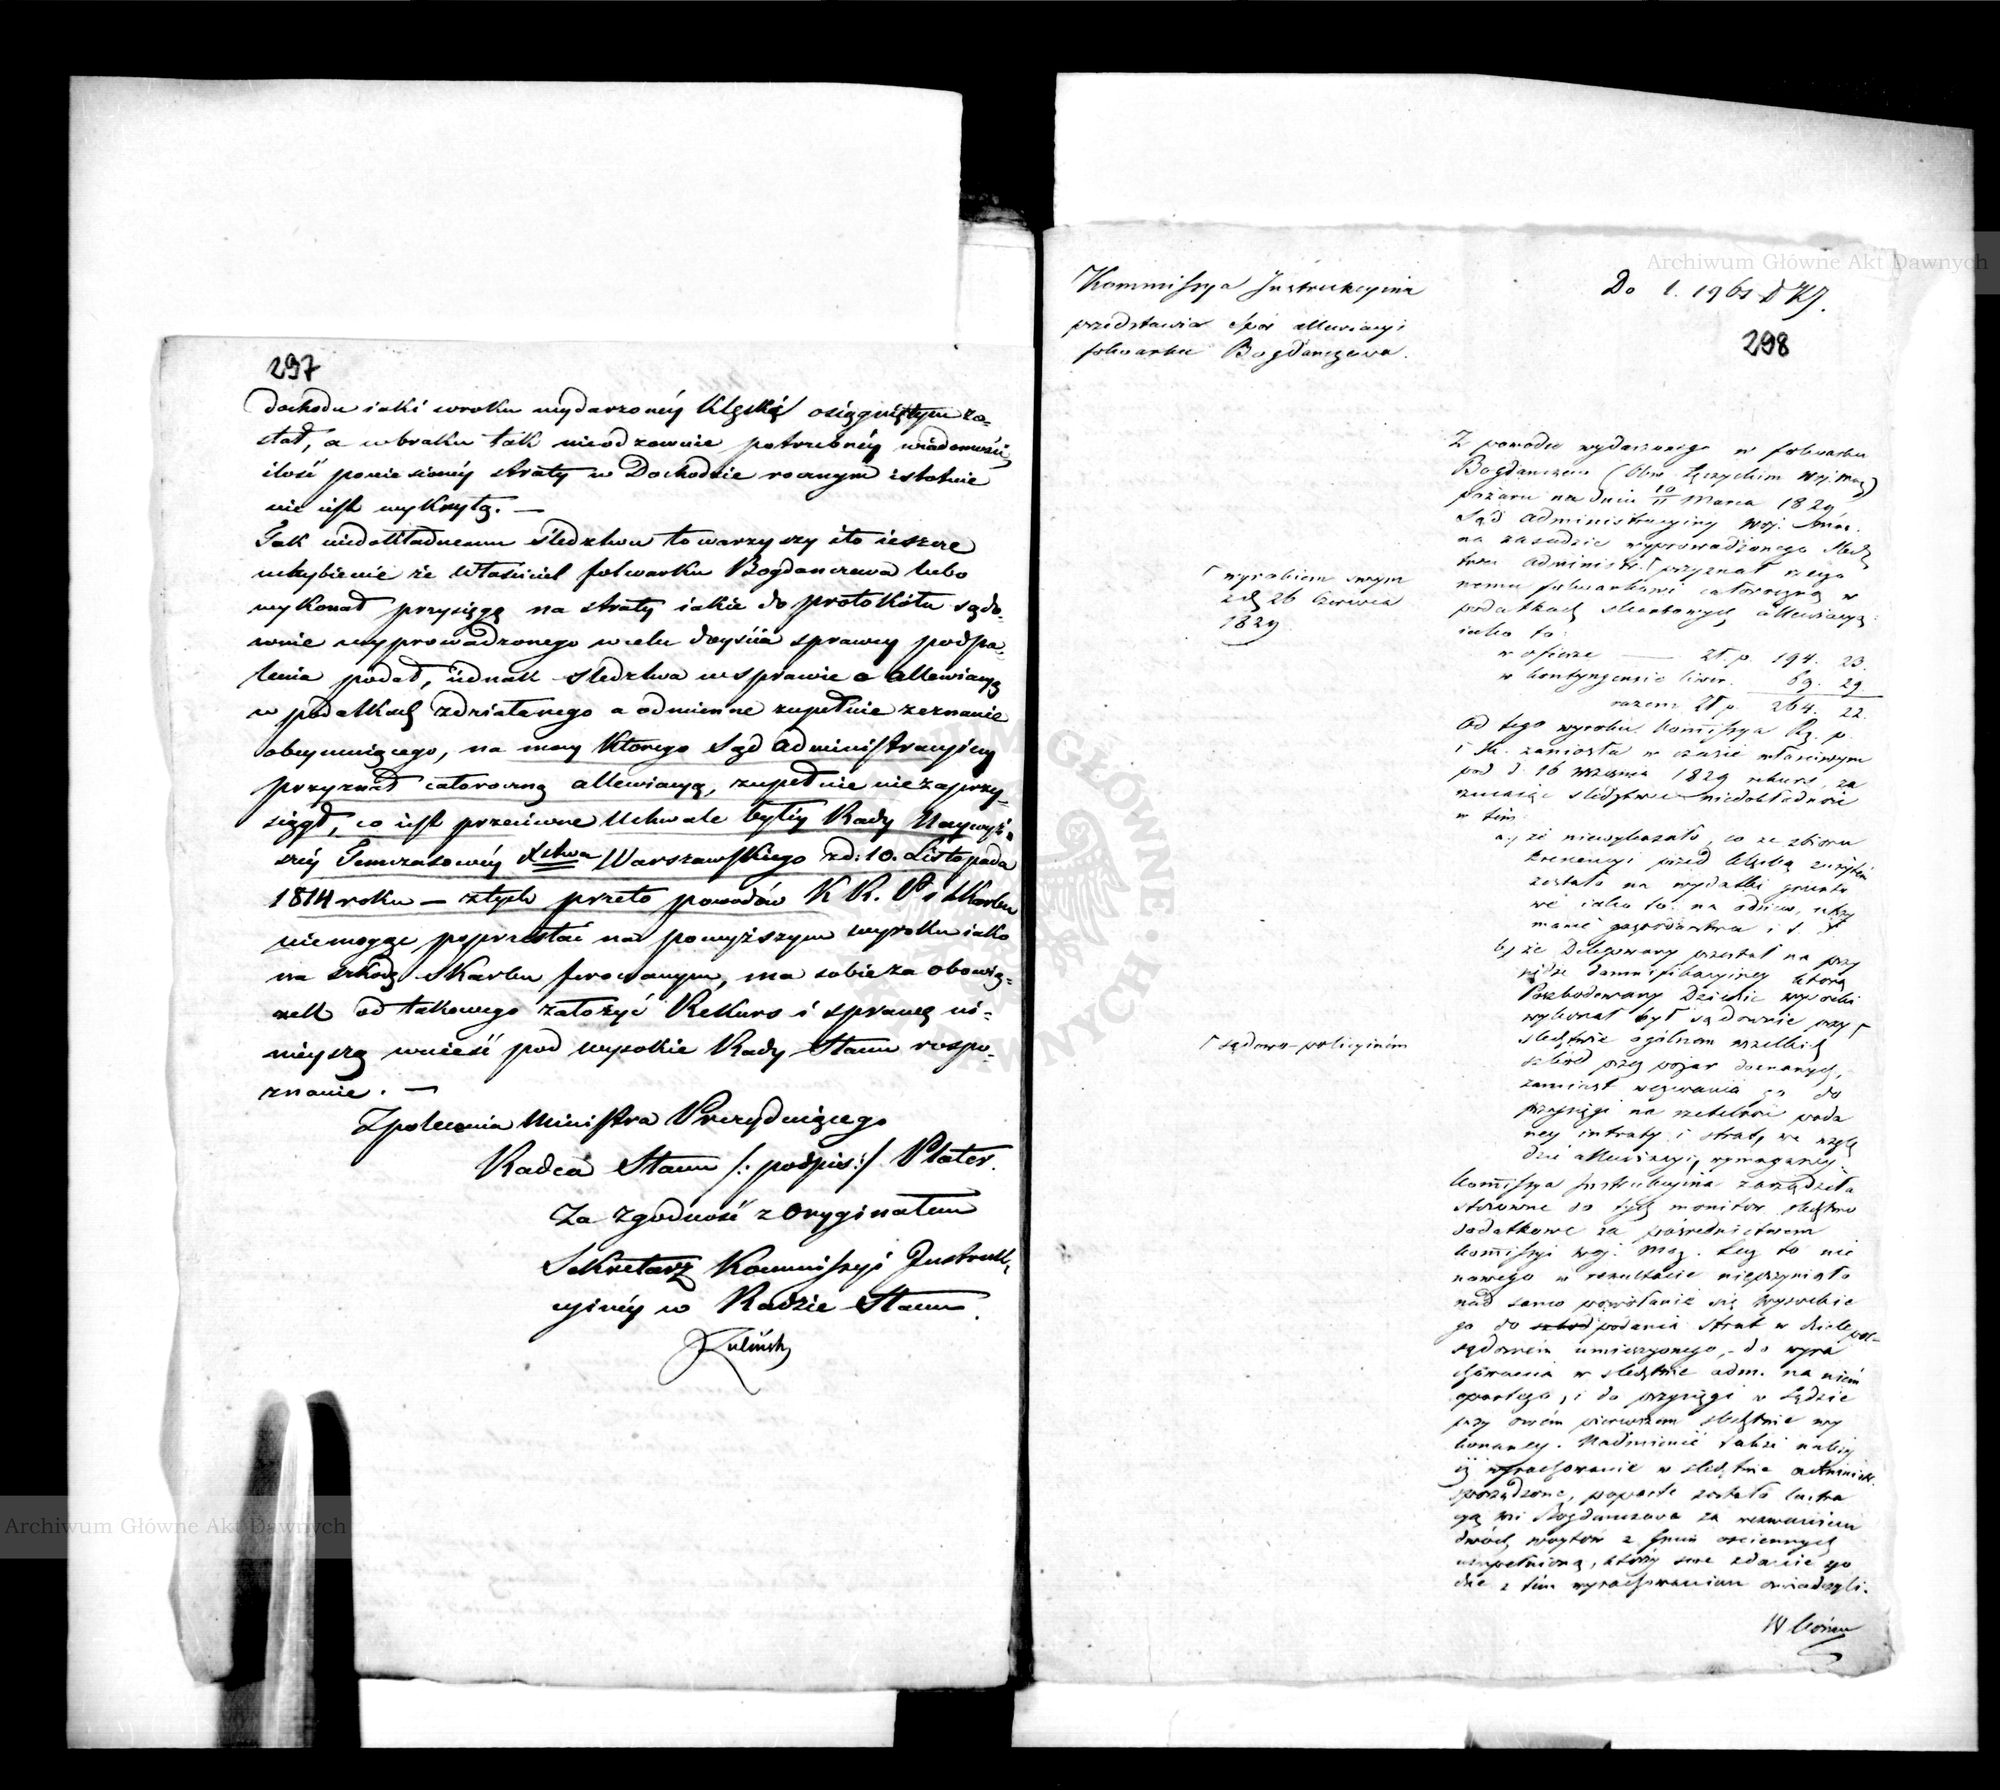 297
dochodu iaki wroku wydarzonéy klęski osiągniętym zo-
stał, a wbraku tak nieodzownie potrzebnéy wiadomości
ilość poniesionéy straty w Dochodzie rocznym istotnie
nie iest wykryta. —
Tak niedokładnemu śledztwu towarzyszy ito ieszcze
uchybienie że Właściciel folwarku Bogdanczewa lubo
wykonał przysięgę na straty iakie do protokółu sądo-
wnie wyprowadzonego wcelu doyścia sprawcy podpa-
lenia podał, iednak śledztwa wsprawie o allewiacyą
w podatkach zdziałanego a odmienne zupełnie zeznanie
obeymuiącego, na mocy którego Sąd Administracyiny
przyznał całoroczną allewiacyą, zupełnie niezaprzy-
siągł, co iest przeciwne Uchwale byłéy Rady Naywyż-
széy Tymczasowéy Xstwa Warszawskiego z d: 10. Listopada
1814 roku — ztych przeto powodów K R. P i Skarbu
niemogąc poprzestać na powyższym wyroku iako
na szkodę Skarbu ferowanym, ma sobie za obowią-
zek od takowego założyć Rekurs i sprawę ni-
nieyszą wnieść pod wysokie Rady Stanu rospo-
znanie. —
Zpolecenia Ministra Prezyduiącego
Radca Stanu /: podpis :/ Plater.
Za zgodność z Oryginałem
Sekretarz Kommissyi Instruk-
cyinéy w Radzie Stanu.
Kommissya Instrukcyina
przedstawia Spór allewiacyi
folwarku Bogdanczewa.
Do l. 1961 D KJ.
298
Z powodu wydarzonego w folwarku
Bogdanczewo (Obw. Łęczyckim Woj. Maz)
pożaru na dniu 10/11 Marca 1829
Sąd Administracyiny Woj. Maz.
na zasadzie wyprowadzonego Śledz
twa Administr. ⌈ przyznał rzeczo
nemu folwarkowi całoroczną w
podatkach skarbowych allewiacyą
iako to:
⌈ wyrokiem swym
z d. 26 Czerwca
1829
w ofierze — Zł. p. 194. 23.
w kontyngensie liwer. 69. 29
razem Zł p. 264. 22.
Od tego wyroku Kommissya Rz. p.
i Sk. zaniosła w czasie właściwym
pod d. 16 Września 1829 rekurs, za
rzucaiąc śledztwu niedokładność
w tém:
a) że niewykazało, co ze zbioru
krescencyi przed klęską zużytém
zostało na wydatki grunto
we iako to: na odsiew, utrzy
manie gospodarstwa i t. d.
b) że Delegowany przestał na przy
siędze damnifikacyiney którą
Poszkodowany Dziedzic wysokości
wykonał był sądownie przy ⌈
⌈ sądowo-policyiném
śledztwie ogólnem wszelkich
szkód przez pożar doznanych,
zamiast wezwania go do
przysięgi na rzetelność poda
ney intraty i straty we wzglę
dzie allewiacyi, wymaganey.
Kommissya Instrukcyina zarządziła
stosownie do tych monitów śledztwo
dodatkowe za pośrednictwem
Kommissyi Woj. Maz. Lecz to nic
nowego w rezultacie nieprzyniosło
nad samo powołanie się
go do podania strat w dziele pol-
sądowém umieszczonego, - do wyra
chowania w śledztwie adm. na niém
opartego, i do przysięgi w Sądzie
przy owém pierwszem śledztwie wy
konaney. Nadmienić także należy
iż wyrachowanie w śledztwie administr.
sporządzone, poparte zostało lustra
cyą wsi Bogdanczewa za wezwaniem
dwóch woytów z gmin ościennych
uzupełnioną, którzy swe zdanie zgo
dne z tém wyrachowaniem oświadczyli.
W końcu